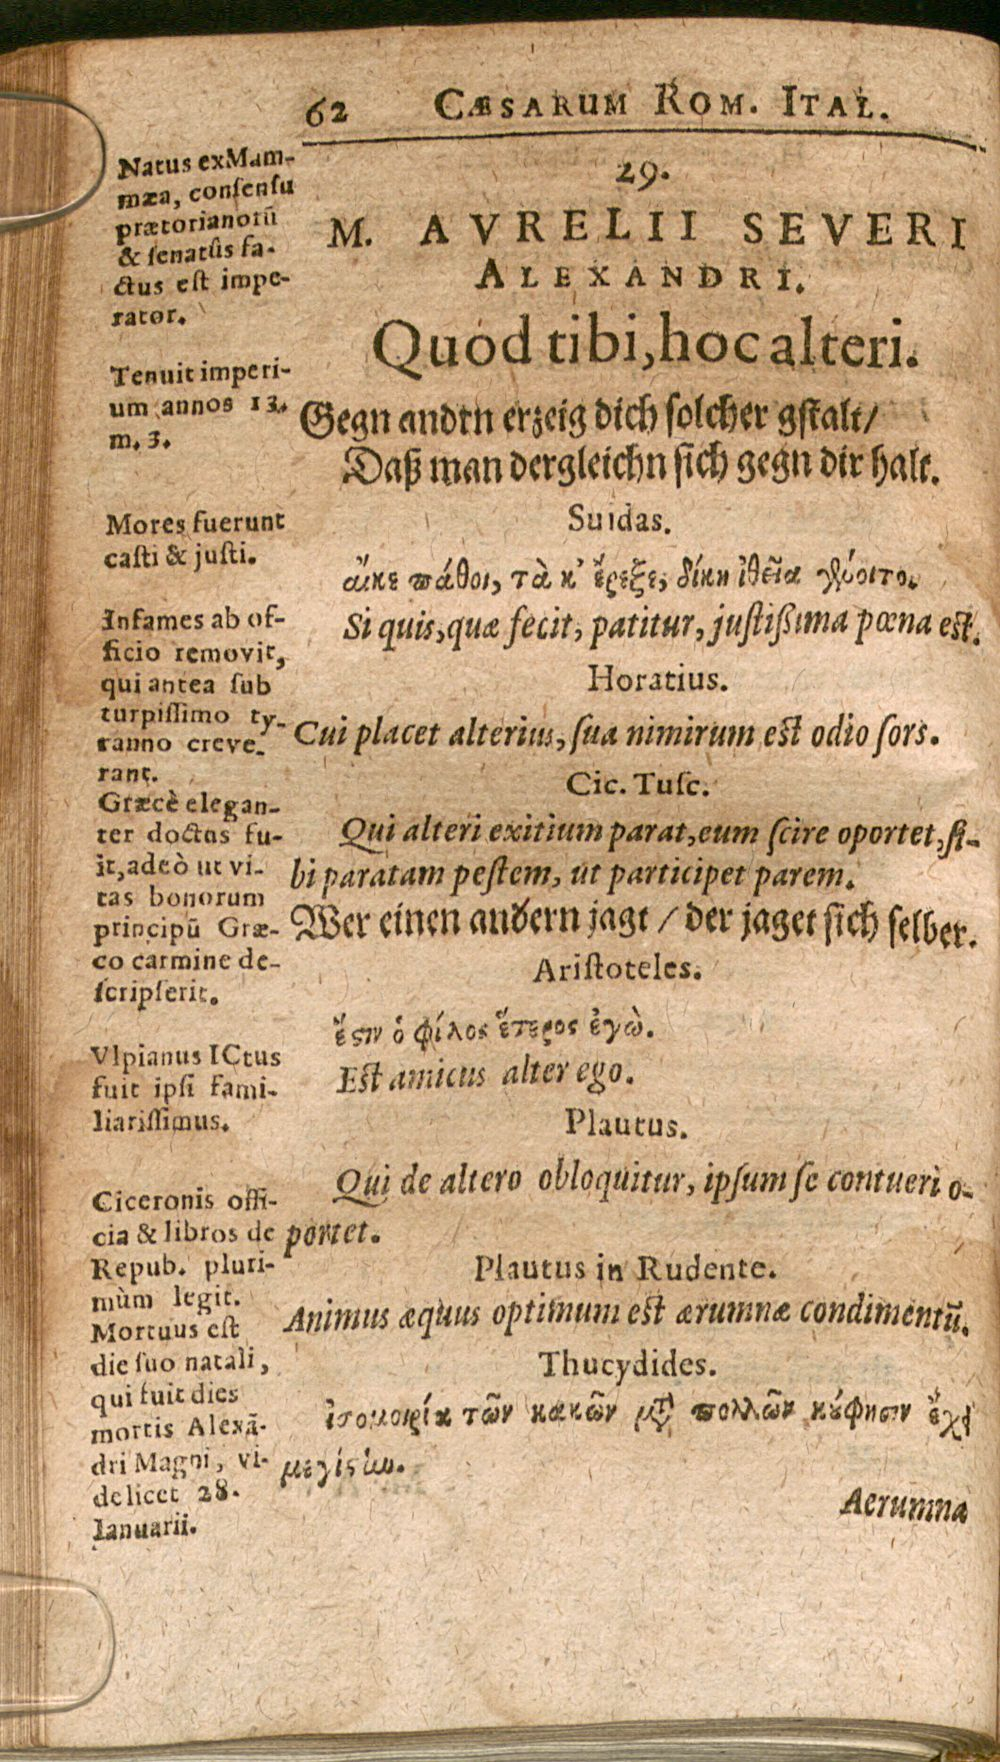 62 CÆSARUM ROM. ITAL.
29.
M. AVRELII SEVERI
ALEXANDRI.
Quod tibi, hoc alteri.
Gegn andrn erzeig dich solcher gstalt/
Daß man dergleichn sich gegn dir halt.
Suidas.
αἴκε πάθοι, τὰ κ' ἔρεξε, δίκη ἰθεῖα γένοιτο.
Si quis, quæ fecit, patitur, justißima pœna est.
Horatius.
Cui placet alterius, sua nimirum est odio sors.
Cic. Tusc.
Qui alteri exitium parat, eum scire oportet, si-
bi paratam pestem, ut participet parem.
Wer einen andern jagt / der jaget sich selber.
Aristoteles.
ἔστιν ὁ φίλος ἕτερος ἐγὼ.
Est amicus alter ego.
Plautus.
Qui de altero obloquitur, ipsum se contueri o-
portet.
Plautus in Rudente.
Animus æquus optimum est ærumnæ condimentũ.
Thucydides.
ἰσομοιρία τῶν κακῶν μετὰ πολλῶν κούφησιν ἔχει
μεγίστην.
Aerumna
Natus ex Mam-
mæa, consensu
prætorianorũ
& senatûs fa-
ctus est impe-
rator.
Tenuit imperi-
um annos 13.
m. 3.
Mores fuerunt
casti & justi.
Infames ab of-
ficio removit,
qui antea sub
turpissimo ty-
ranno creve-
rant.
Græcè elegan-
ter doctus fu-
it, adeò ut vi-
tas bonorum
principũ Græ-
co carmine de-
scripserit.
Vlpianus ICtus
fuit ipsi fami-
liarissimus.
Ciceronis offi-
cia & libros de
Repub. pluri-
mùm legit.
Mortuus est
die suo natali,
qui fuit dies
mortis Alexã-
dri Magni, vi-
delicet 28.
Ianuarii.